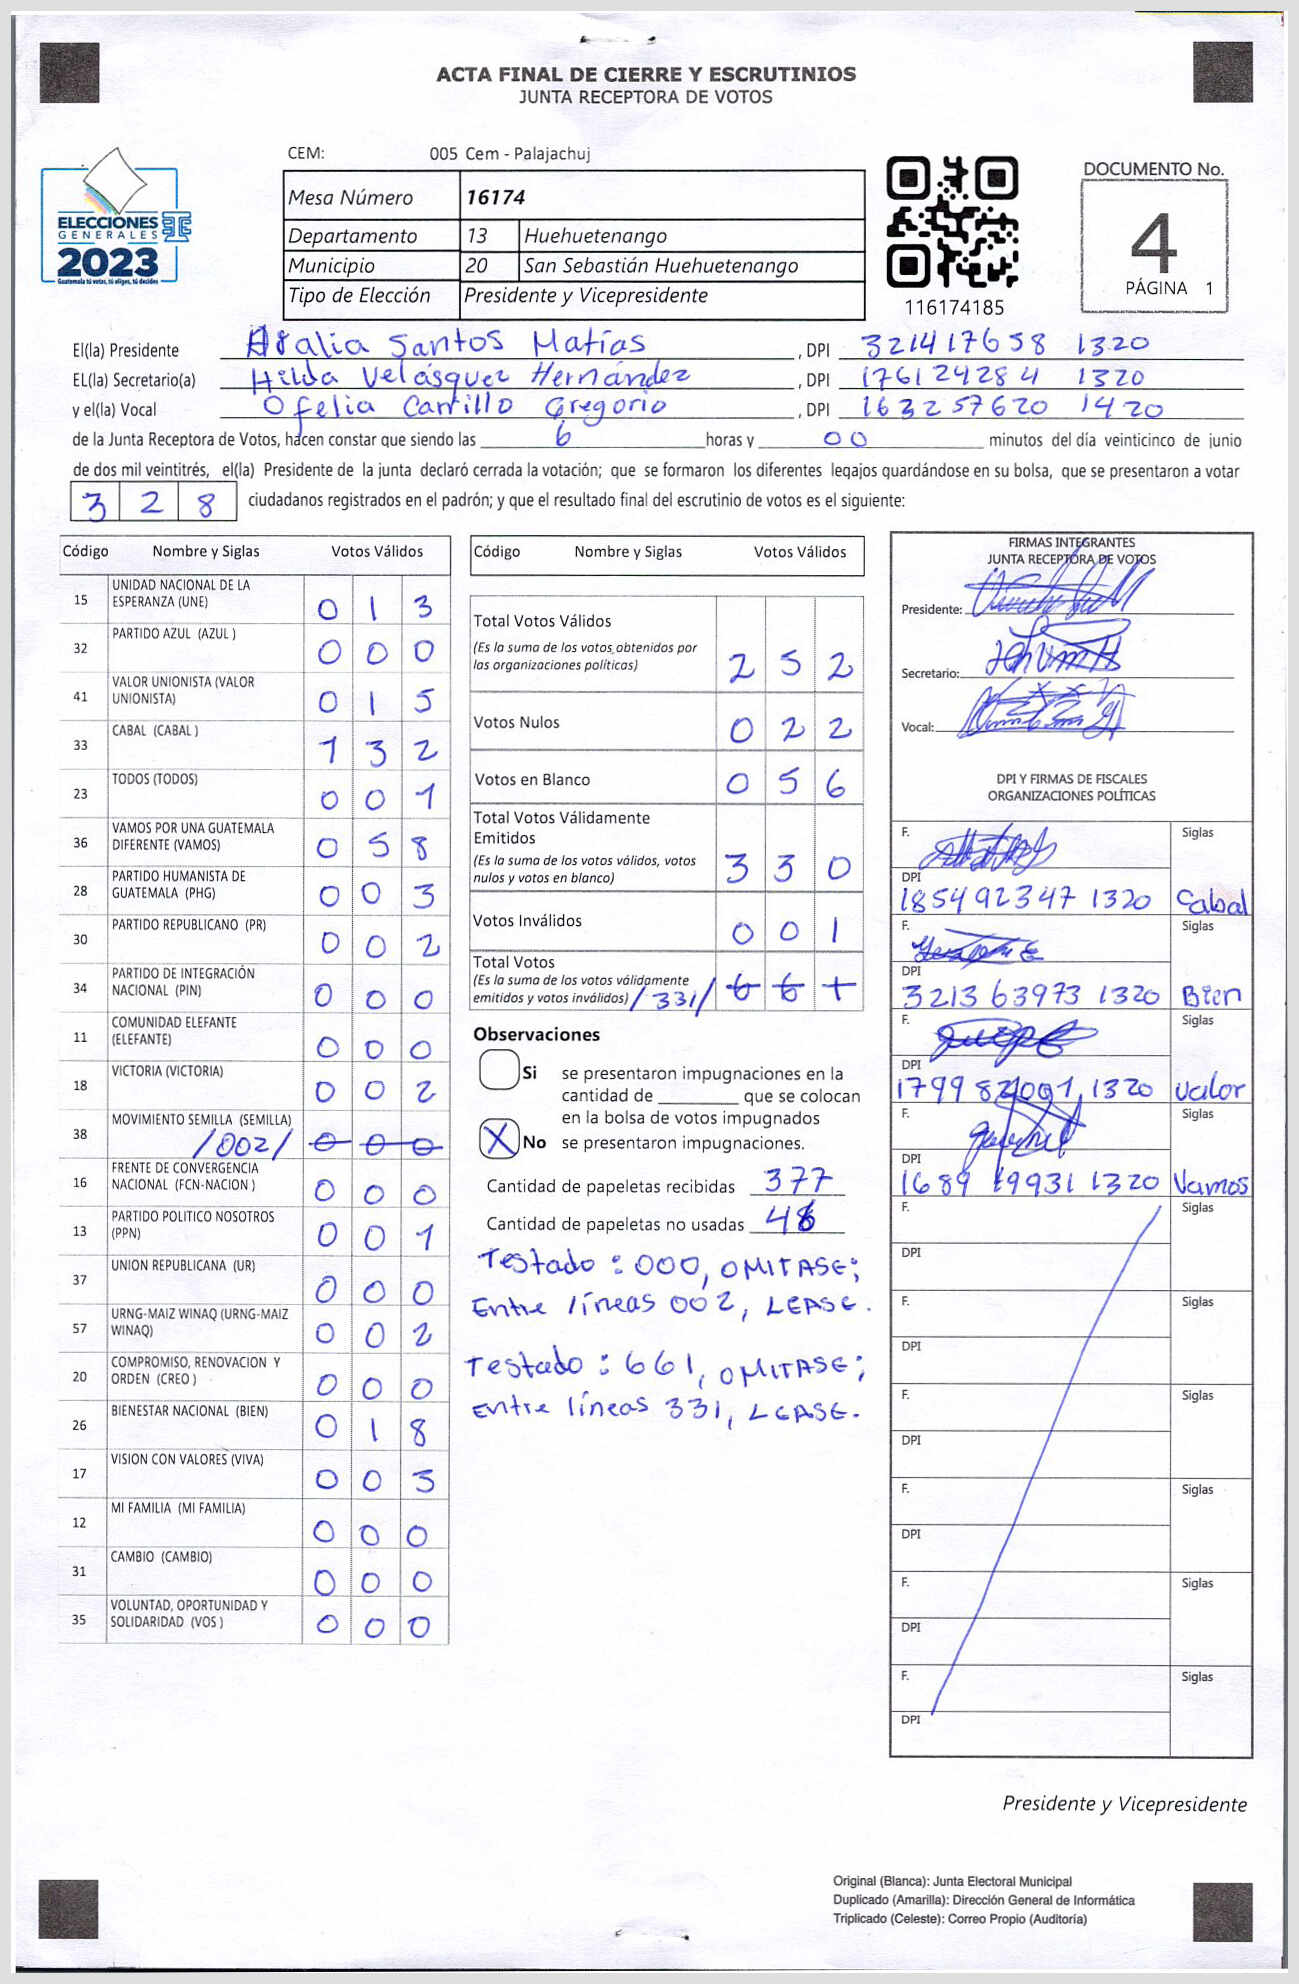 ACTA FINAL DE CIERRE Y ESCRUTINIOS
JUNTA RECEPTORA DE VOTOS
CEM: 005 Cem - Palajachuj
ELECCIONES
GENERALES
2023
Guatemala tú votas, tú eliges, tú decides
Mesa Número 16174
Departamento 13 Huehuetenango
Municipio 20 San Sebastián Huehuetenango
Tipo de Elección Presidente y Vicepresidente
116174185
DOCUMENTO No.
4
PÁGINA 1
El(la) Presidente Santos Matías , DPI 321417658 1320
EL(la) Secretario(a) Hilda Velásquez Hernández , DPI 176124284 1320
y el(la) Vocal Ofelia Carrillo Gregorio , DPI 163257620 1420
de la Junta Receptora de Votos, hacen constar que siendo las 6 horas y 00 minutos del día veinticinco de junio
de dos mil veintitrés, el(la) Presidente de la junta declaró cerrada la votación; que se formaron los diferentes legajos guardándose en su bolsa, que se presentaron a votar
328 ciudadanos registrados en el padrón; y que el resultado final del escrutinio de votos es el siguiente:
Código Nombre y Siglas Votos Válidos
15 UNIDAD NACIONAL DE LA
ESPERANZA (UNE) 0 1 3
32 PARTIDO AZUL (AZUL ) 0 0 0
41 VALOR UNIONISTA (VALOR
UNIONISTA) 0 1 5
33 CABAL (CABAL ) 1 3 2
23 TODOS (TODOS) 0 0 1
36 VAMOS POR UNA GUATEMALA
DIFERENTE (VAMOS) 0 5 8
28 PARTIDO HUMANISTA DE
GUATEMALA (PHG) 0 0 3
30 PARTIDO REPUBLICANO (PR) 0 0 2
34 PARTIDO DE INTEGRACIÓN
NACIONAL (PIN) 0 0 0
11 COMUNIDAD ELEFANTE
(ELEFANTE) 0 0 0
18 VICTORIA (VICTORIA) 0 0 2
38 MOVIMIENTO SEMILLA (SEMILLA)
/002/ 0 0 0
16 FRENTE DE CONVERGENCIA
NACIONAL (FCN-NACION ) 0 0 0
13 PARTIDO POLITICO NOSOTROS
(PPN) 0 0 1
37 UNION REPUBLICANA (UR) 0 0 0
57 URNG-MAIZ WINAQ (URNG-MAIZ
WINAQ) 0 0 2
20 COMPROMISO, RENOVACION Y
ORDEN (CREO ) 0 0 0
26 BIENESTAR NACIONAL (BIEN) 0 1 8
17 VISION CON VALORES (VIVA) 0 0 3
12 MI FAMILIA (MI FAMILIA) 0 0 0
31 CAMBIO (CAMBIO) 0 0 0
35 VOLUNTAD, OPORTUNIDAD Y
SOLIDARIDAD (VOS ) 0 0 0
Código Nombre y Siglas Votos Válidos
Total Votos Válidos
(Es la suma de los votos obtenidos por
las organizaciones políticas) 2 5 2
Votos Nulos 0 2 2
Votos en Blanco 0 5 6
Total Votos Válidamente
Emitidos
(Es la suma de los votos válidos, votos
nulos y votos en blanco) 3 3 0
Votos Inválidos 0 0 1
Total Votos
(Es la suma de los votos válidamente
emitidos y votos inválidos) /331/ 6 6 1
Observaciones
Si se presentaron impugnaciones en la
cantidad de ________ que se colocan
en la bolsa de votos impugnados
X No se presentaron impugnaciones.
Cantidad de papeletas recibidas 377
Cantidad de papeletas no usadas 46
Testado : 000, OMITASE;
Entre líneas 002, LEASE.
Testado : 661, OMITASE;
Entre líneas 331, LEASE.
FIRMAS INTEGRANTES
JUNTA RECEPTORA DE VOTOS
Presidente:
Secretario:
Vocal:
DPI Y FIRMAS DE FISCALES
ORGANIZACIONES POLÍTICAS
F. Siglas
DPI
185492347 1320 Cabal
F. Siglas
DPI
321363973 1320 Bien
F. Siglas
DPI
1320 Valor
F. Siglas
DPI
1689 19931 1320 Vamos
F. Siglas
DPI
F. Siglas
DPI
F. Siglas
DPI
F. Siglas
DPI
F. Siglas
DPI
F. Siglas
DPI
Presidente y Vicepresidente
Original (Blanca): Junta Electoral Municipal
Duplicado (Amarilla): Dirección General de Informática
Triplicado (Celeste): Correo Propio (Auditoría)